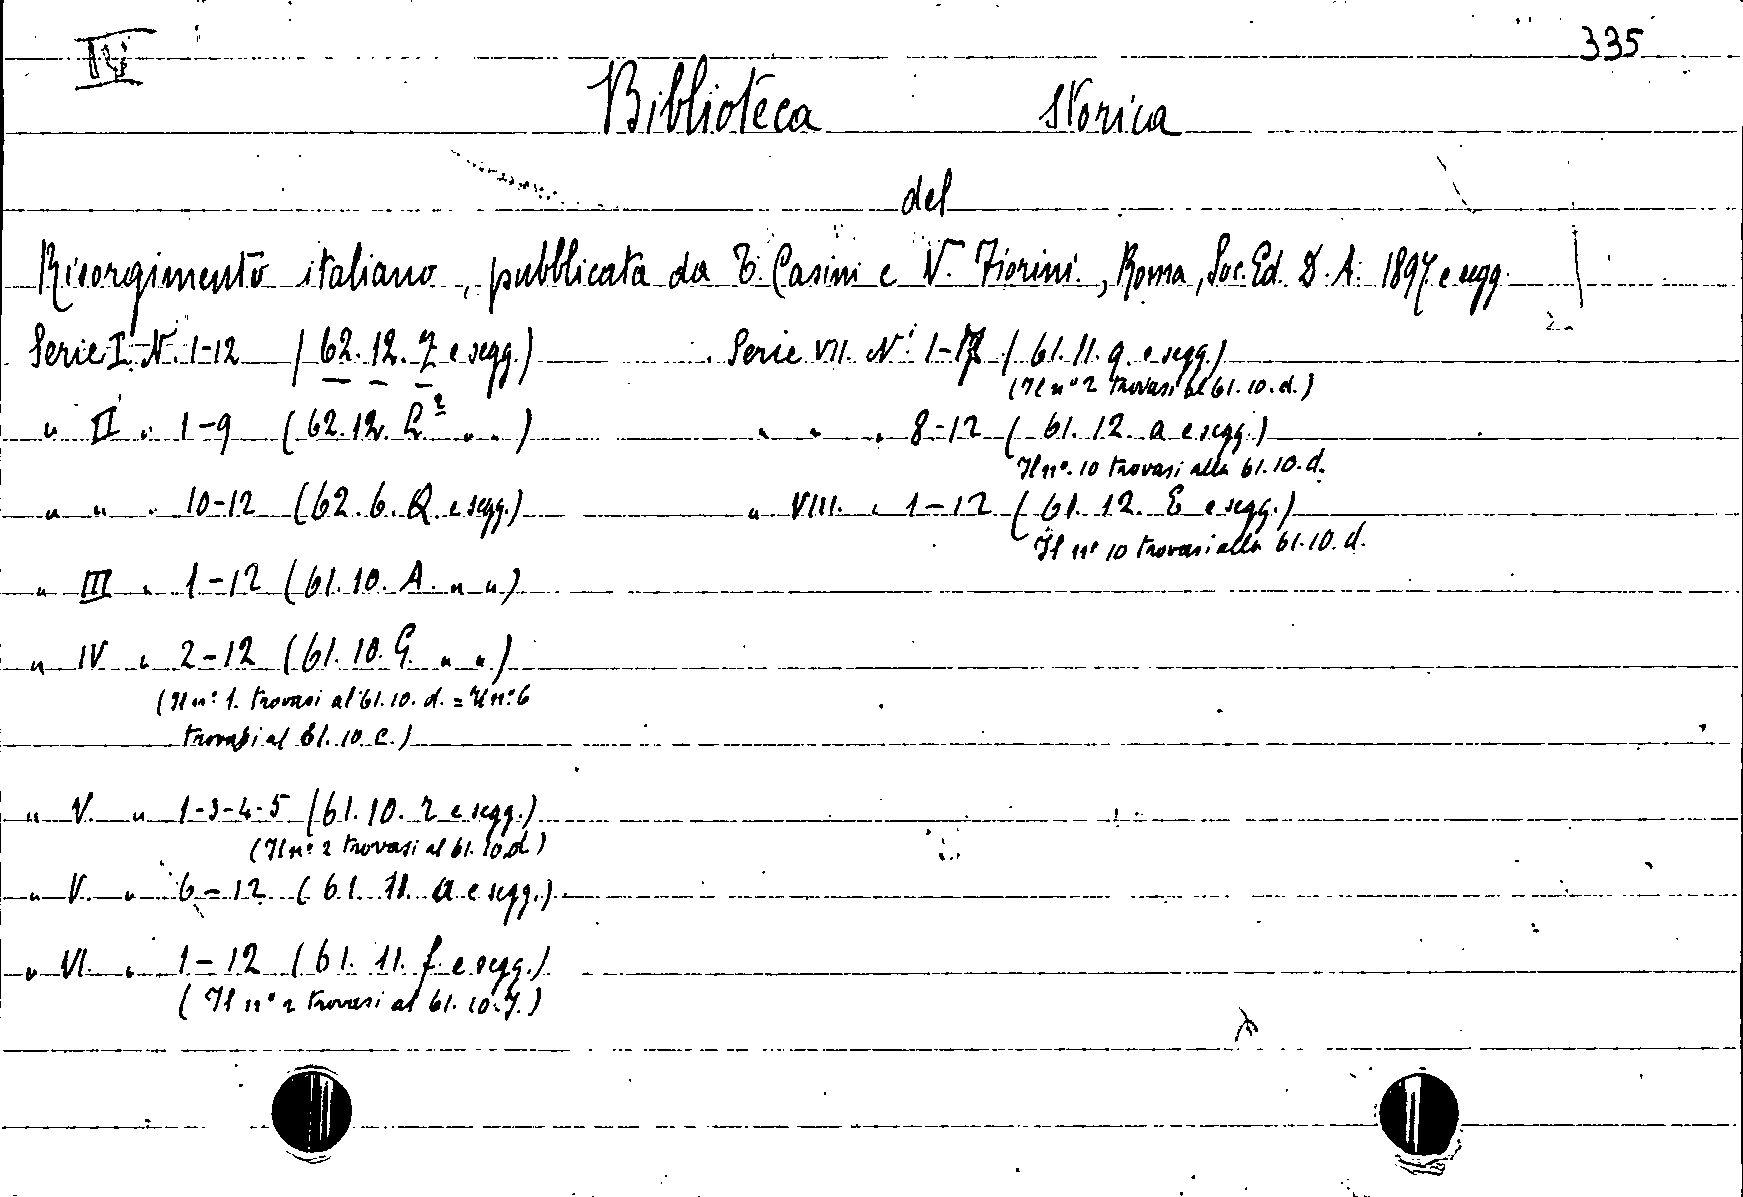 IV
335
Biblioteca storica
del
Risorgimento italiano, pubblicata da T. Casini e V. Fiorini, Roma, Soc. Ed. D. A. 1897 e segg.
Serie I. N. 1-12 (62.12.Z e segg.)
" II " 1-9 (62.12. " ")
" " " 10-12 (62.6.Q. e segg.)
" III " 1-12 (61.10.A. " ")
" IV " 2-12 (61.10.G. " ")
(Il n° 1. trovasi al 61.10.d. = Il n° 6
trovasi al 61.10.c.)
" V. " 1-3-4-5 (61.10.r e segg.)
(Il n° 2 trovasi al 61.10.d)
" V. " 6-12 (61.11.a e segg.)
" VI. " 1-12 (61.11.f. e segg.)
(Il n° 2 trovasi al 61.10.)
Serie VII. Ni 1-7 (61.11.q. e segg.)
(Il n° 2 trovasi al 61.10.d.)
" " " 8-12 (61.12.a e segg.)
Il n°. 10 trovasi alla 61.10.d.
" VIII. " 1-12 (61.12.E e segg.)
Il n° 10 trovasi alla 61.10.d.